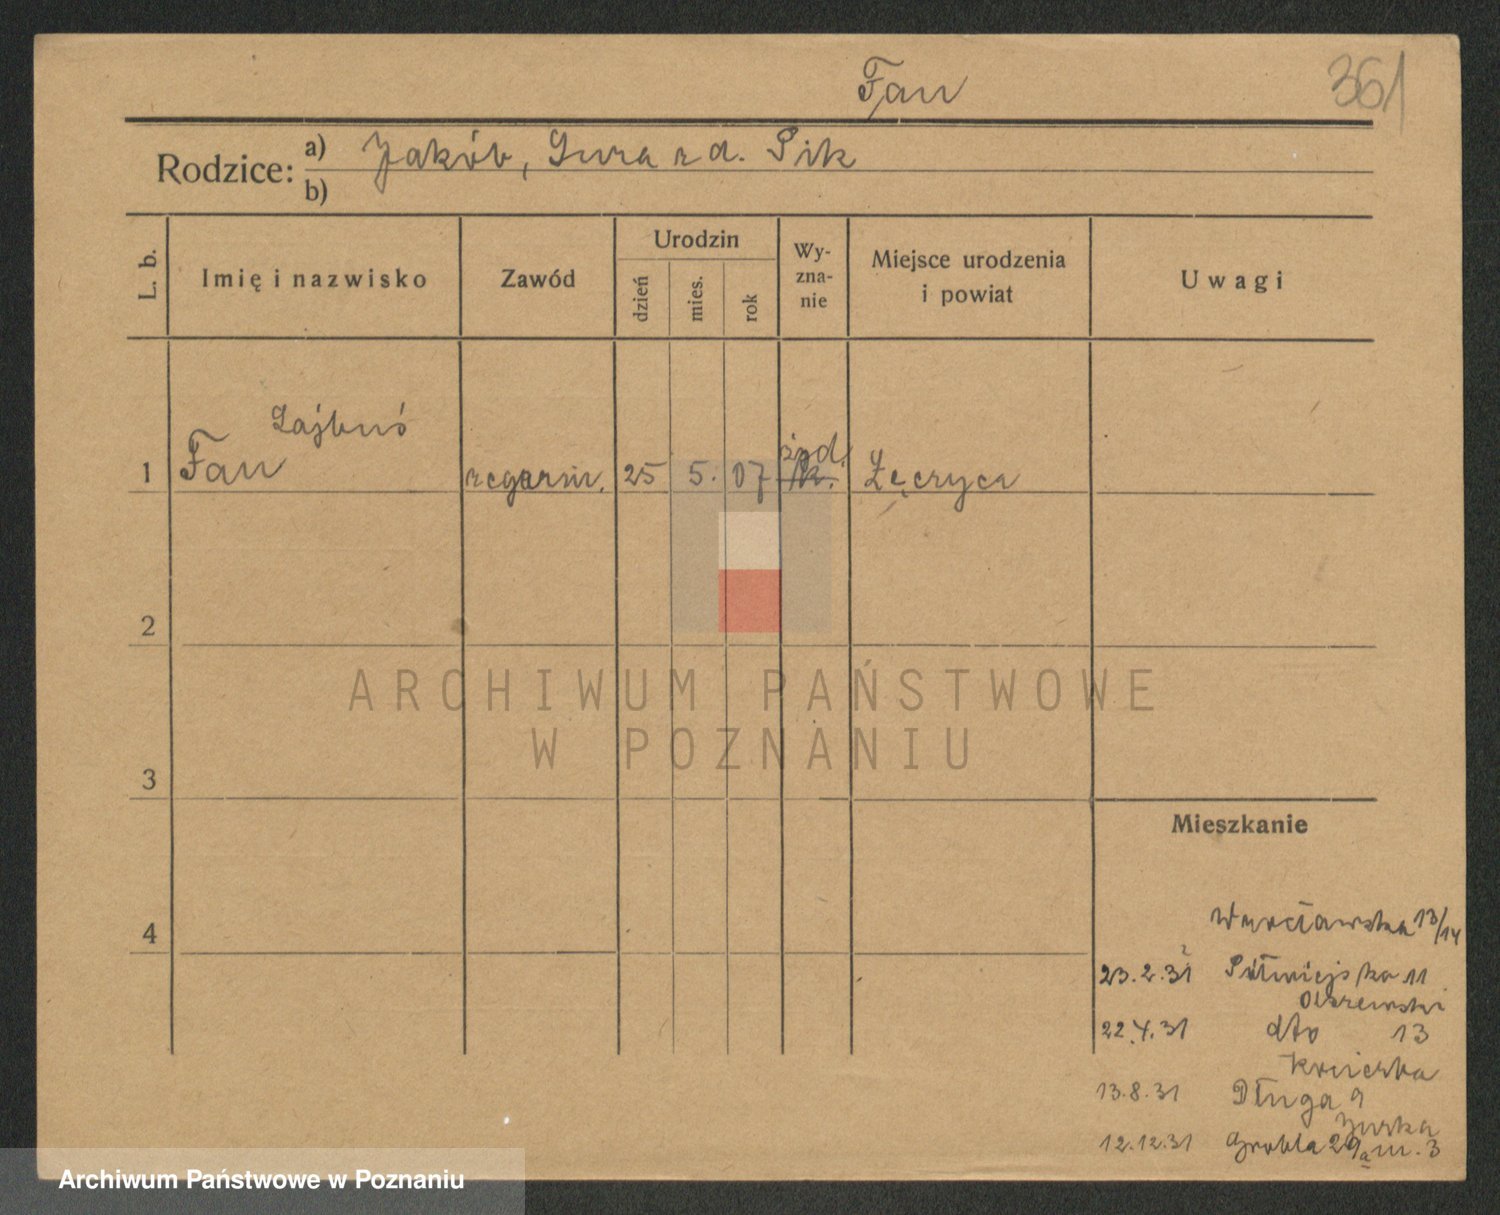 Fan
361
Rodzice: a) Jakób, Sura z d. Pik
b)
L. b.
Imię i nazwisko
Zawód
Urodzin
dzień
mies.
rok
Wy-
zna-
nie
Miejsce urodzenia
i powiat
Uwagi
Lajbuś
żyd.
1 Fan zegarm. 25 5. 07 Łęczyca
2
3
4
ARCHIWUM PAŃSTWOWE
W POZNANIU
Mieszkanie
Wrocławska 13/14
23.2.31 Półwiejska 11
Olszewski
22.4.31 dto 13
13.8.31 Długa 9
12.12.31 Grobla 29a m. 3
Archiwum Państwowe w Poznaniu